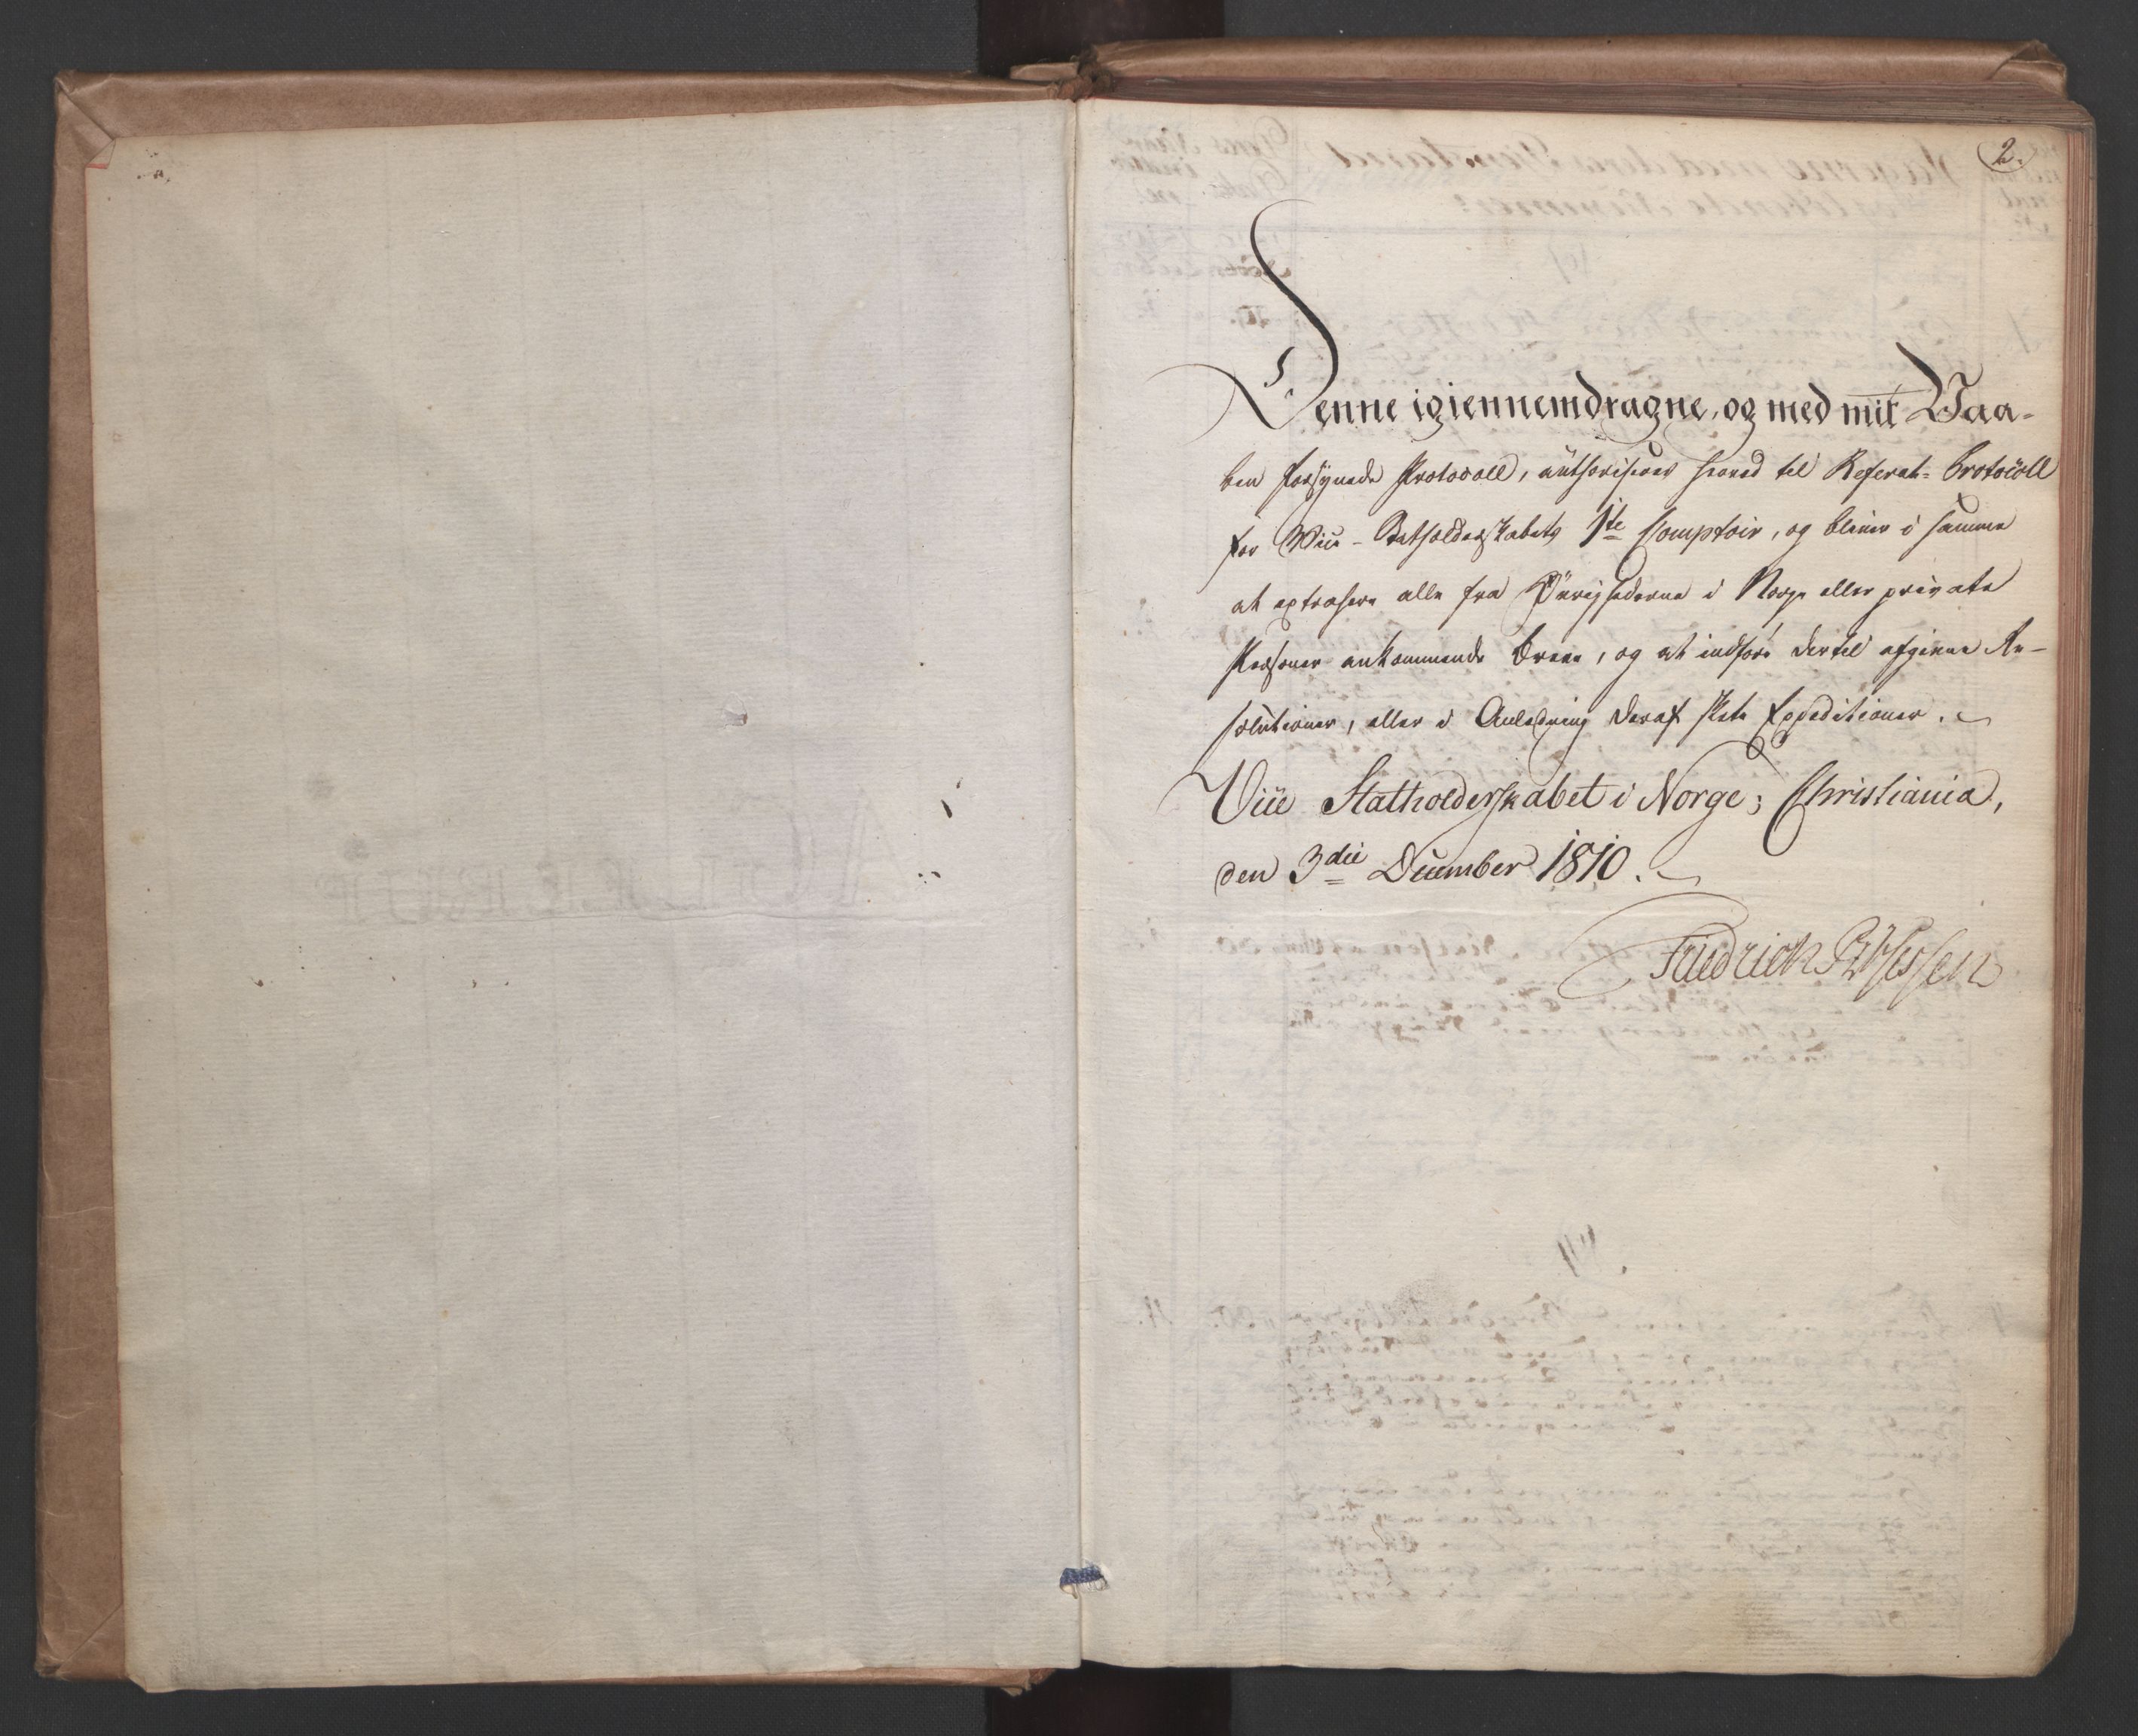 2.
Denne igiennemdragne, og med mit Vaa-
ben forsynede Protocoll, authoriseres herved til Referat-Protocoll
for Vice-Statholderskabets 1ste Comptoir, og bliver i samme
at extrahere alle fra Øvrighederne i Norge eller private
Personer ankommende Breve, og at indføre dertil afgivne Re-
solutioner, eller i Anledning deraf skete Expeditioner.
Vice Statholderskabet i Norge; Christiania,
den 3die December 1810.
Friedrich